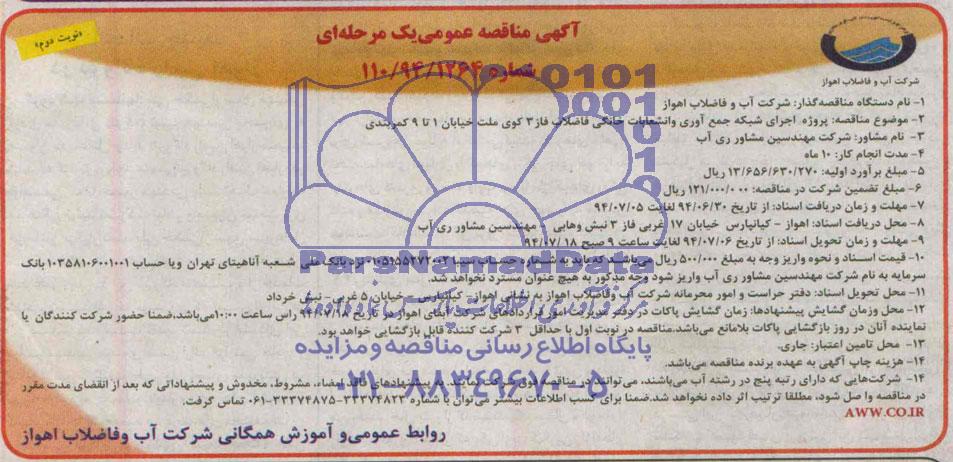 آگهی مناقصه عمومی یک مرحله‌ای
«نوبت دوم»
شماره ۱۱۰/۹۴/۱۲۶۴
شرکت آب و فاضلاب اهواز
۱- نام دستگاه مناقصه‌گذار: شرکت آب و فاضلاب اهواز
۲- موضوع مناقصه: پروژه اجرای شبکه جمع آوری وانشعابات خانگی فاضلاب فاز۳ کوی ملت خیابان ۱ تا ۹ کمربندی
۳- نام مشاور: شرکت مهندسین مشاور ری آب
۴- مدت انجام کار: ۱۰ ماه
۵- مبلغ برآورد اولیه: ۱۳/۶۵۶/۶۳۰/۲۷۰ ریال
۶- مبلغ تضمین شرکت در مناقصه: ۱۲۱/۰۰۰/۰۰۰ ریال
۷- مهلت و زمان دریافت اسناد: از تاریخ ۹۴/۰۶/۳۰ لغایت ۹۴/۰۷/۰۵
۸- محل دریافت اسناد: اهواز - کیانپارس خیابان ۱۷ غربی فاز ۳ نبش وهابی - مهندسین مشاور ری آب
۹- مهلت و زمان تحویل اسناد: از تاریخ ۹۴/۰۷/۰۶ لغایت ساعت ۹ صبح ۹۴/۰۷/۱۸
۱۰- قیمت اسناد و نحوه واریز وجه به مبلغ ۵۰۰/۰۰۰ ریال می‌باشد که باید به شماره حساب سیبا ۰۱۰۵۱۵۵۲۷۲۰۰۲ نزد بانک ملی شعبه آناهیتای تهران ویا حساب ۱۰۳۵۸۱۰۶۰۰۱۰۰۱ بانک
سرمایه به نام شرکت مهندسین مشاور ری آب واریز شود وجه مذکور به هیچ عنوان مسترد نخواهد شد.
۱۱- محل تحویل اسناد: دفتر حراست و امور محرمانه شرکت آب وفاضلاب اهواز به نشانی اهواز- کیانپارس - خیابان ۵ غربی- نبش خرداد
۱۲- محل وزمان گشایش پیشنهادها: زمان گشایش پاکات در دفتر مدیریت امور قراردادهای شرکت آبفای اهواز در تاریخ ۹۴/۰۷/۱۸ راس ساعت ۱۰:۰۰می‌باشد،ضمنا حضور شرکت کنندگان یا
نماینده آنان در روز بازگشایی پاکات بلامانع می‌باشد.مناقصه در نوبت اول با حداقل ۳ شرکت کننده قابل بازگشایی خواهد بود.
۱۳- محل تامین اعتبار: جاری.
۱۴- هزینه چاپ آگهی به عهده برنده مناقصه می‌باشد.
۱۴- شرکت‌هایی که دارای رتبه پنج در رشته آب می‌باشند، می‌توانند در مناقصه فوق شرکت نمایند. به پیشنهادهای فاقد امضاء، مشروط، مخدوش و پیشنهاداتی که بعد از انقضای مدت مقرر
در مناقصه وا صل شود، مطلقا ترتیب اثر داده نخواهد شد.ضمنا برای کسب اطلاعات بیشتر می‌توان با شماره ۳۳۳۷۴۸۲۳-۳۳۳۷۴۸۷۵-۰۶۱ تماس گرفت.
AWW.CO.IR
روابط عمومی و آموزش همگانی شرکت آب وفاضلاب اهواز
ParsNamadData
پایگاه اطلاع رسانی مناقصه و مزایده
۰۲۱-۸۸۳۴۹۶۷۰-۵